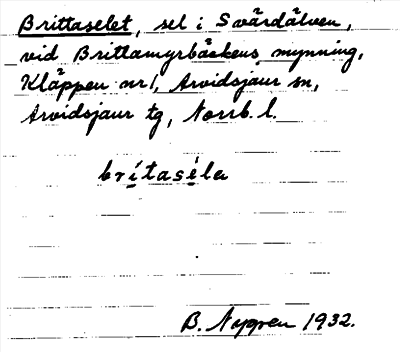 Brittaselet, sel i Svärdälven,
vid Brittamyrbäckens mynning,
Kläppen nr 1, Arvidsjaur sn,
Arvidsjaur tg, Norrb. l.
brítaséla
B. Nygren 1932.